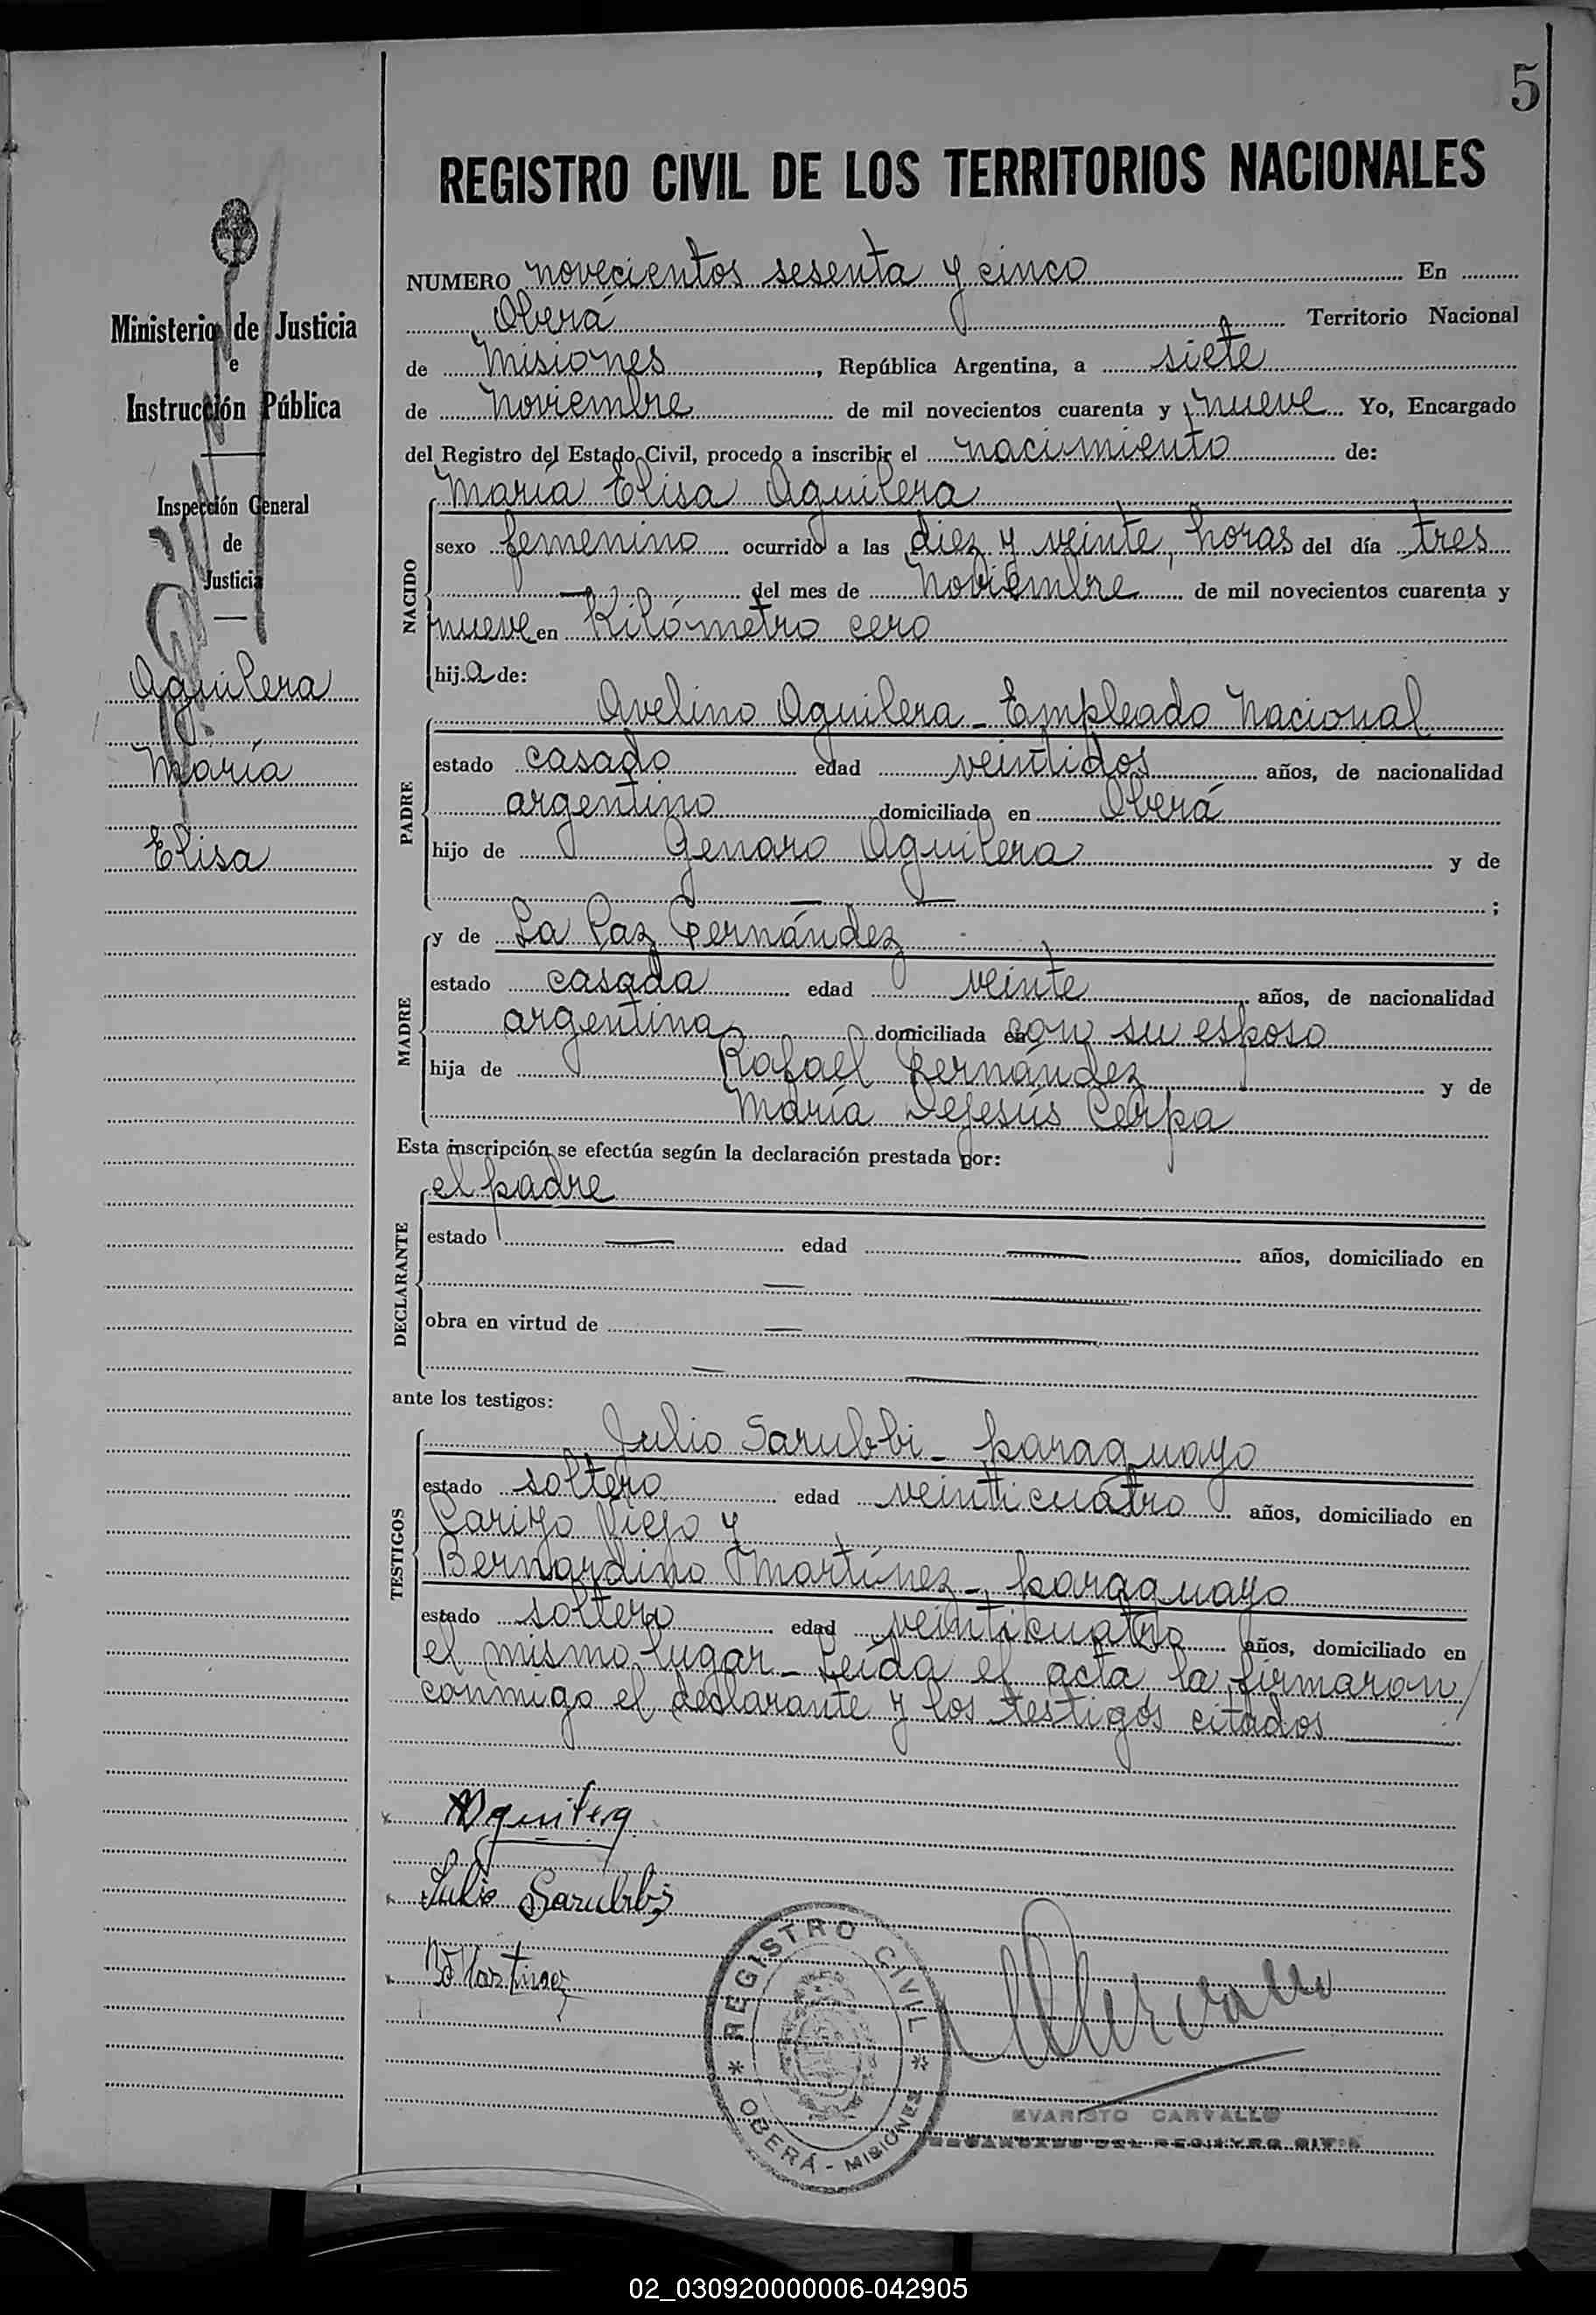 5
REGISTRO CIVIL DE LOS TERRITORIOS NACIONALES
Ministerio de Justicia
e
Instrucción Pública
Inspección General
de
Justicia
Aguilera
María
Elisa
NUMERO novecientos sesenta y cinco En
Oberá Territorio Nacional
de Misiones, República Argentina, a siete
de noviembre de mil novecientos cuarenta y nueve Yo, Encargado
del Registro del Estado Civil, procedo a inscribir el nacimiento de:
NACIDO
María Elisa Aguilera
sexo femenino ocurrido a las diez y veinte, horas del día tres
— del mes de noviembre de mil novecientos cuarenta y
nueve en Kilómetro cero
hija de:
PADRE
Avelino Aguilera - Empleado Nacional
estado casado edad veintidos años, de nacionalidad
argentino domiciliado en Oberá
hijo de Genaro Aguilera y de
— — ;
MADRE
y de La Paz Fernández
estado casada edad veinte años, de nacionalidad
argentina domiciliada en con su esposo
hija de Rafael Fernández y de
María Dejesús Cerpa
Esta inscripción se efectúa según la declaración prestada por:
DECLARANTE
el padre
estado — edad — años, domiciliado en
— —
obra en virtud de — —
— —
ante los testigos:
TESTIGOS
Julio Sarubbi - paraguayo
estado soltero edad veinticuatro años, domiciliado en
Viejo y
Bernardino Martínez - paraguayo
estado soltero edad veinticuatro años, domiciliado en
el mismo lugar - Leída el acta la firmaron
conmigo el declarante y los testigos citados
Aguilera
Julio Sarubbi
B. Martinez
REGISTRO CIVIL
OBERÁ - MISIONES
EVARISTO CARVALLO
ENCARGADO DEL REGISTRO CIVIL
02_030920000006-042905